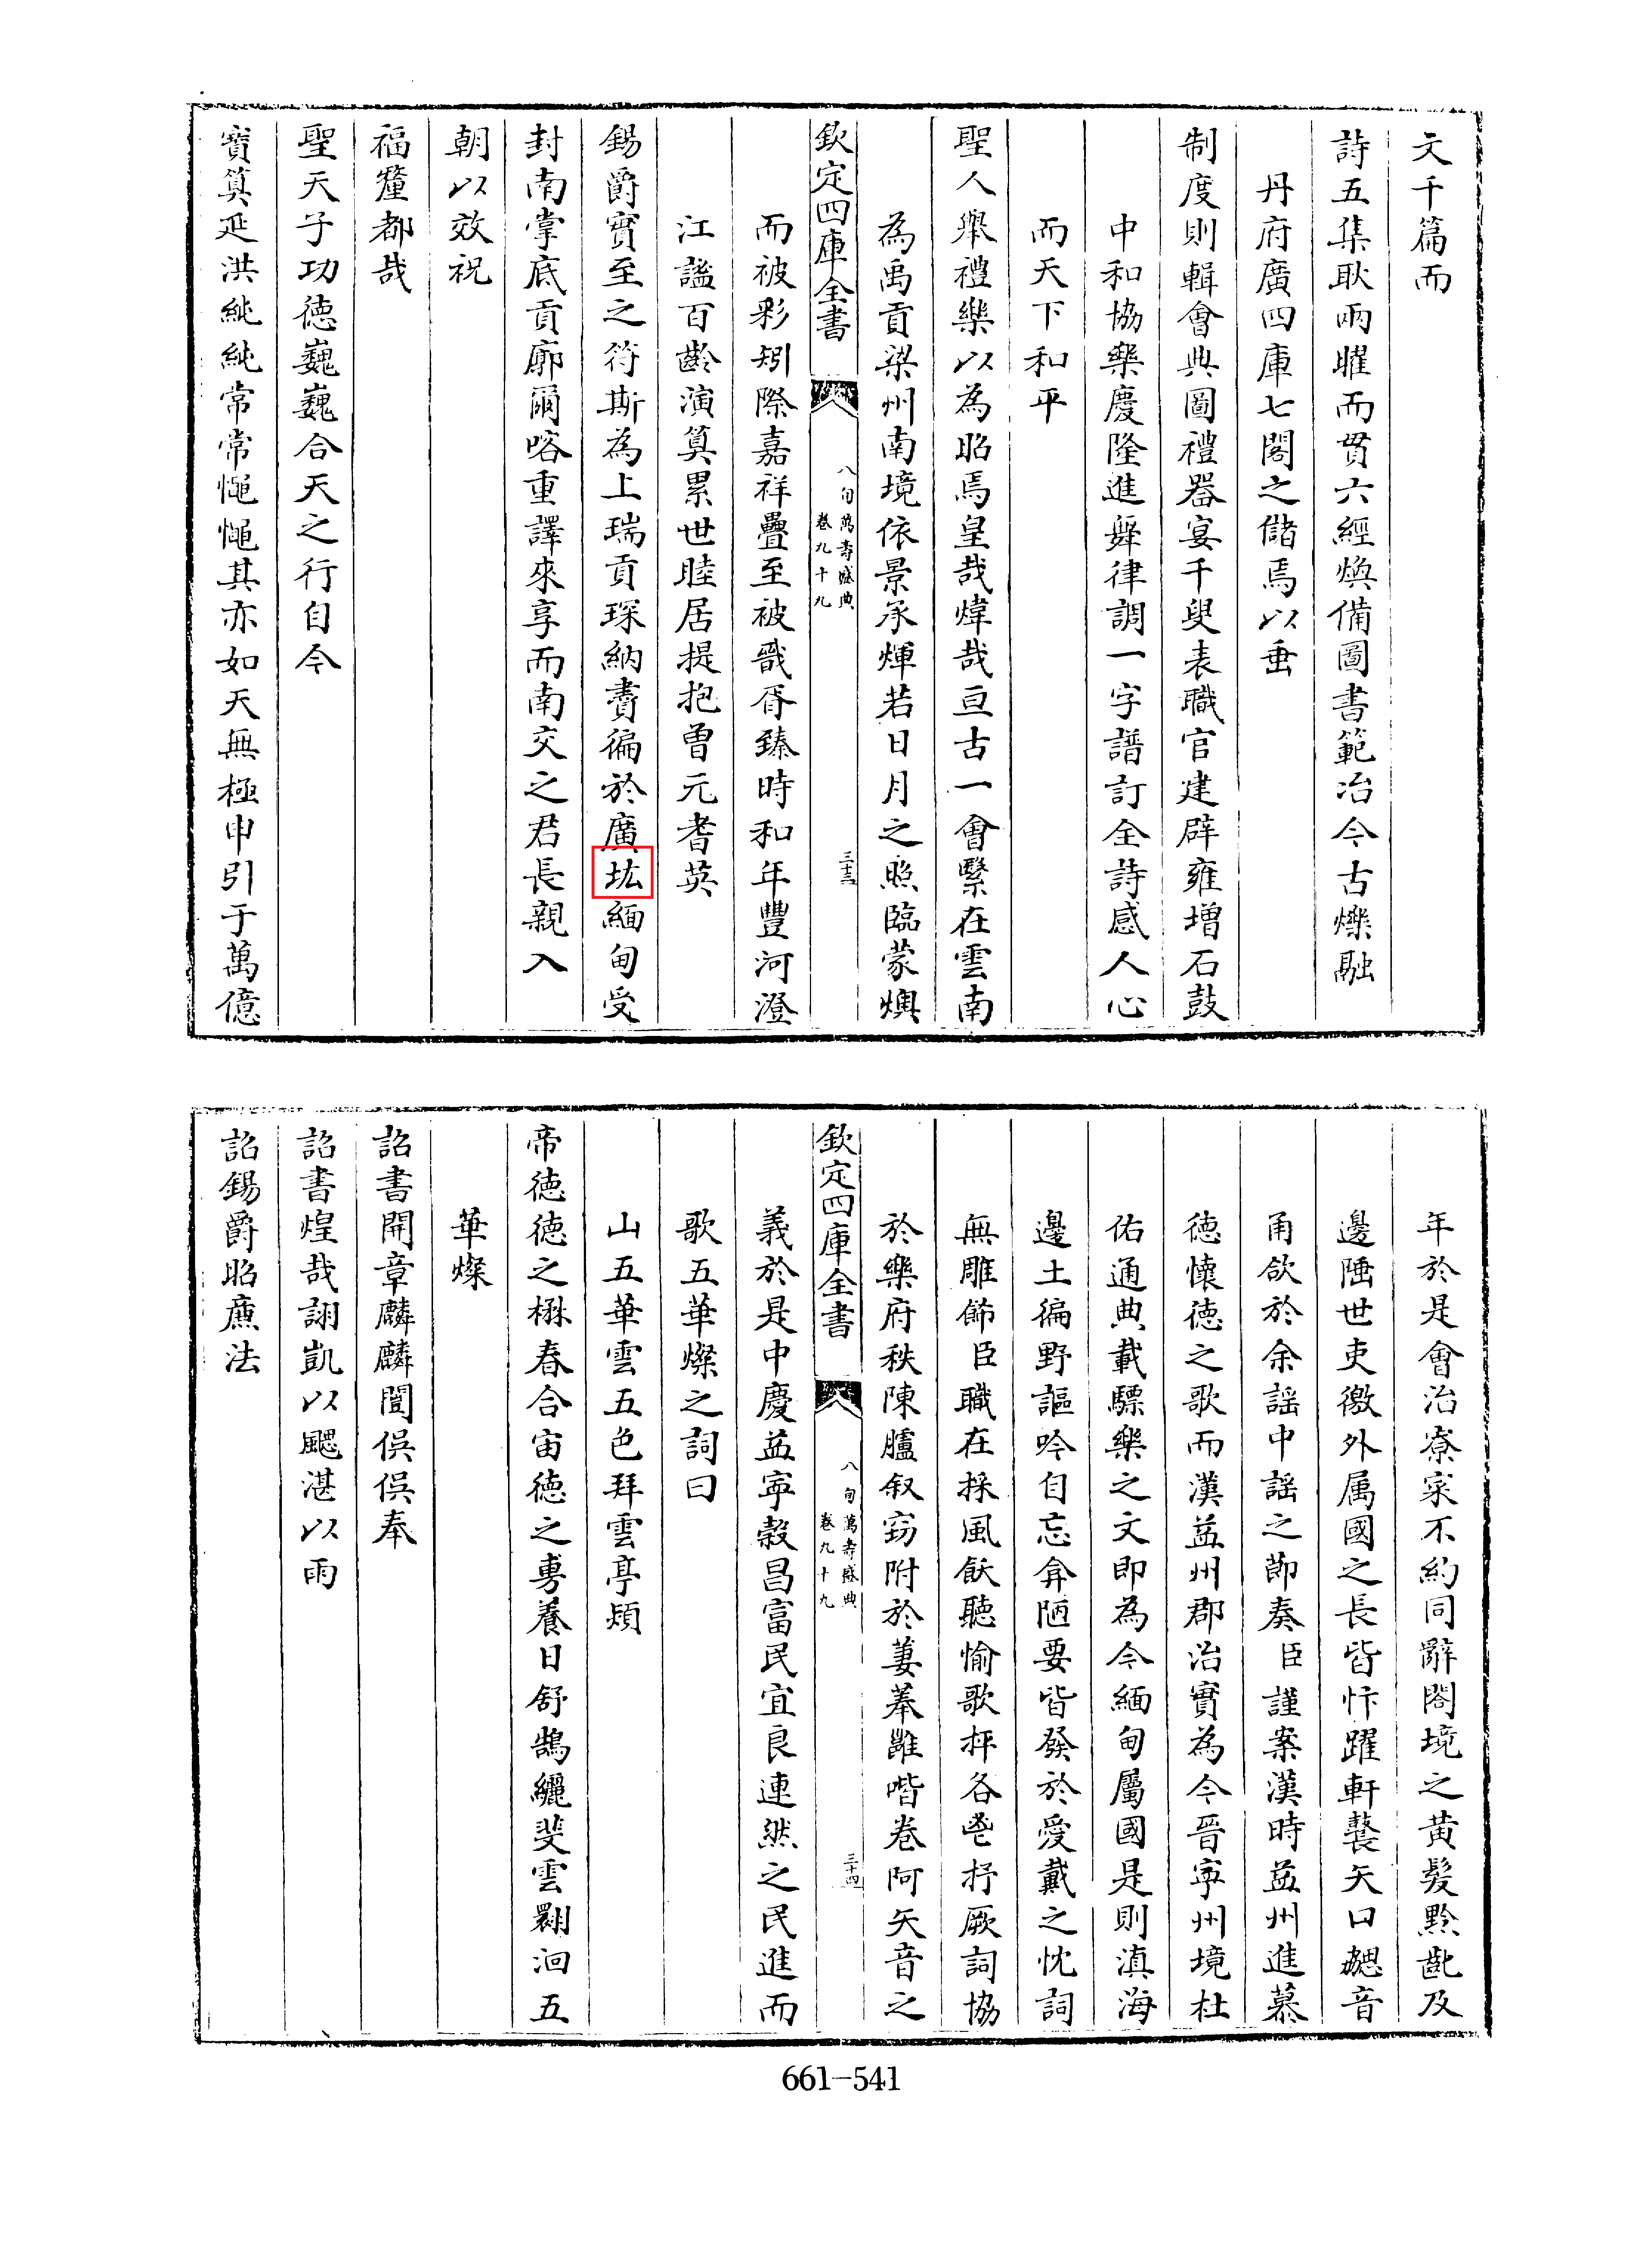 文千篇而
詩五集耿兩曜而貫六經煥備圖書範冶今古爍融
丹府廣四庫七閣之儲焉以垂
制度則輯會典圖禮器宴千叟表職官建辟雍增石鼓
中和協樂慶隆進舞律調一字譜訂全詩感人心
而天下和平
聖人舉禮樂以為昭焉皇哉煒哉亘古一會繄在雲南
為禹貢梁州南境依景承煇若日月之照臨蒙燠
欽定四庫全書
八旬萬壽盛典
卷九十九
三十三
而被彩矧際嘉祥疊至被戩胥臻時和年豐河澄
江謐百齡演筭累世睦居提抱曾元耆英
錫爵實至之符斯為上瑞貢琛納賮徧於廣圹緬甸受
封南掌底貢廓爾喀重譯來享而南交之君長親入
朝以效祝
福釐都哉
聖天子功德巍巍合天之行自今
寳筭延洪純純常常憴憴其亦如天無極申引于萬億
年於是會治寮寀不約同辭閤境之黃髮黔齔及
邊陲世吏徼外属國之長皆忭躍軒鼚矢口勰音
甬欲於余謡中謡之節奏臣謹案漢時益州進慕
德懷德之歌而漢益州郡治實為今晉寧州境杜
佑通典載驃樂之文即為今緬甸屬國是則滇海
邊土徧野謳吟自忘弇陋要皆發於愛戴之忱詞
無雕飾臣職在採風飫聽愉歌枰各鬯抒厥詞協
於樂府秩陳臚叙窃附於萋菶雝喈卷阿矢音之
欽定四庫全書
八旬萬壽盛典
卷九十九
三十四
義於是中慶益寧穀昌富民宜良連然之民進而
歌五華燦之詞曰
山五華雲五色拜雲亭頍
帝德德之楙春合宙德之旉養日舒鵠纚斐雲翽洄五
華燦
詔書開章麟麟闓俁俁奉
詔書煌哉詡凱以颸湛以雨
詔錫爵昭廉法
661-541